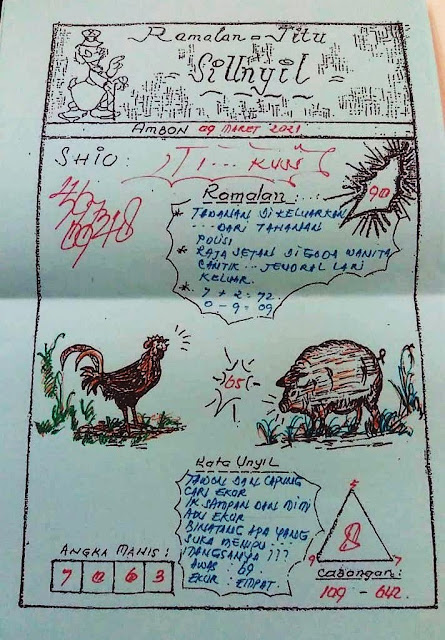 Ramalan = Jitu
Si Unyil
AMBON 09 MARET 2021
SHIO : TI... KUS
90
Ramalan :
* TAHANAN DI KELUARKAN
... DARI TAHANAN
POLISI
* RAJA SETAN DI GODA WANITA
CANTIK ... JENDRAL LARI
KELUAR.
* 7 + 2 = 72.
0 - 9 = 09
65
Kata Unyil
TAWON DAN CAPUNG
CARI EKOR
K. SAMPAN DAN MIMI
ADU EKOR
BINATANG APA YANG
SUKA MENIPU
MANGSANYA ???
AWAS : 69.
EKOR : EMPAT.
5
8
9 7
ANGKA MANIS :
7 0 6 3
Cadangan :
109 - 642.